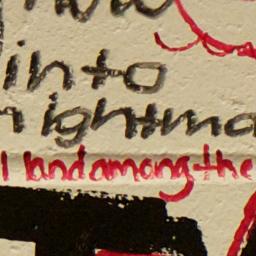 into
nightma
land among the